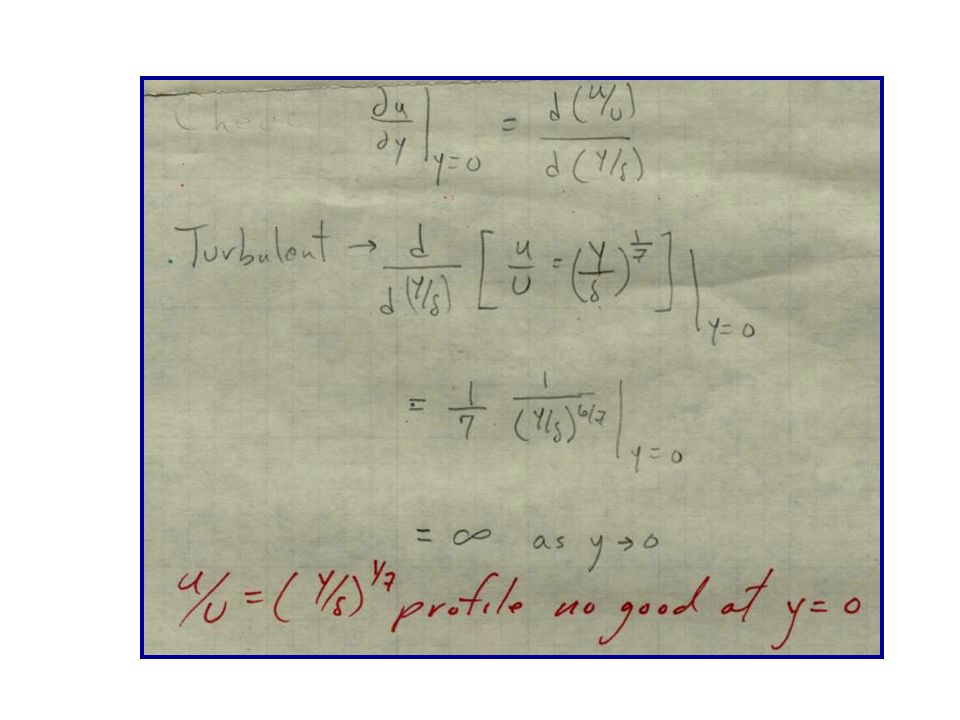 ∂u/∂y |y=0 = d(u/U) / d(y/δ)
Turbulent → d/d(y/δ) [ u/U = (y/δ)^1/7 ] |y=0
= 1/7 1/(y/δ)^6/7 |y=0
= ∞ as y → 0
u/U = (y/δ)^1/7 profile no good at y = 0